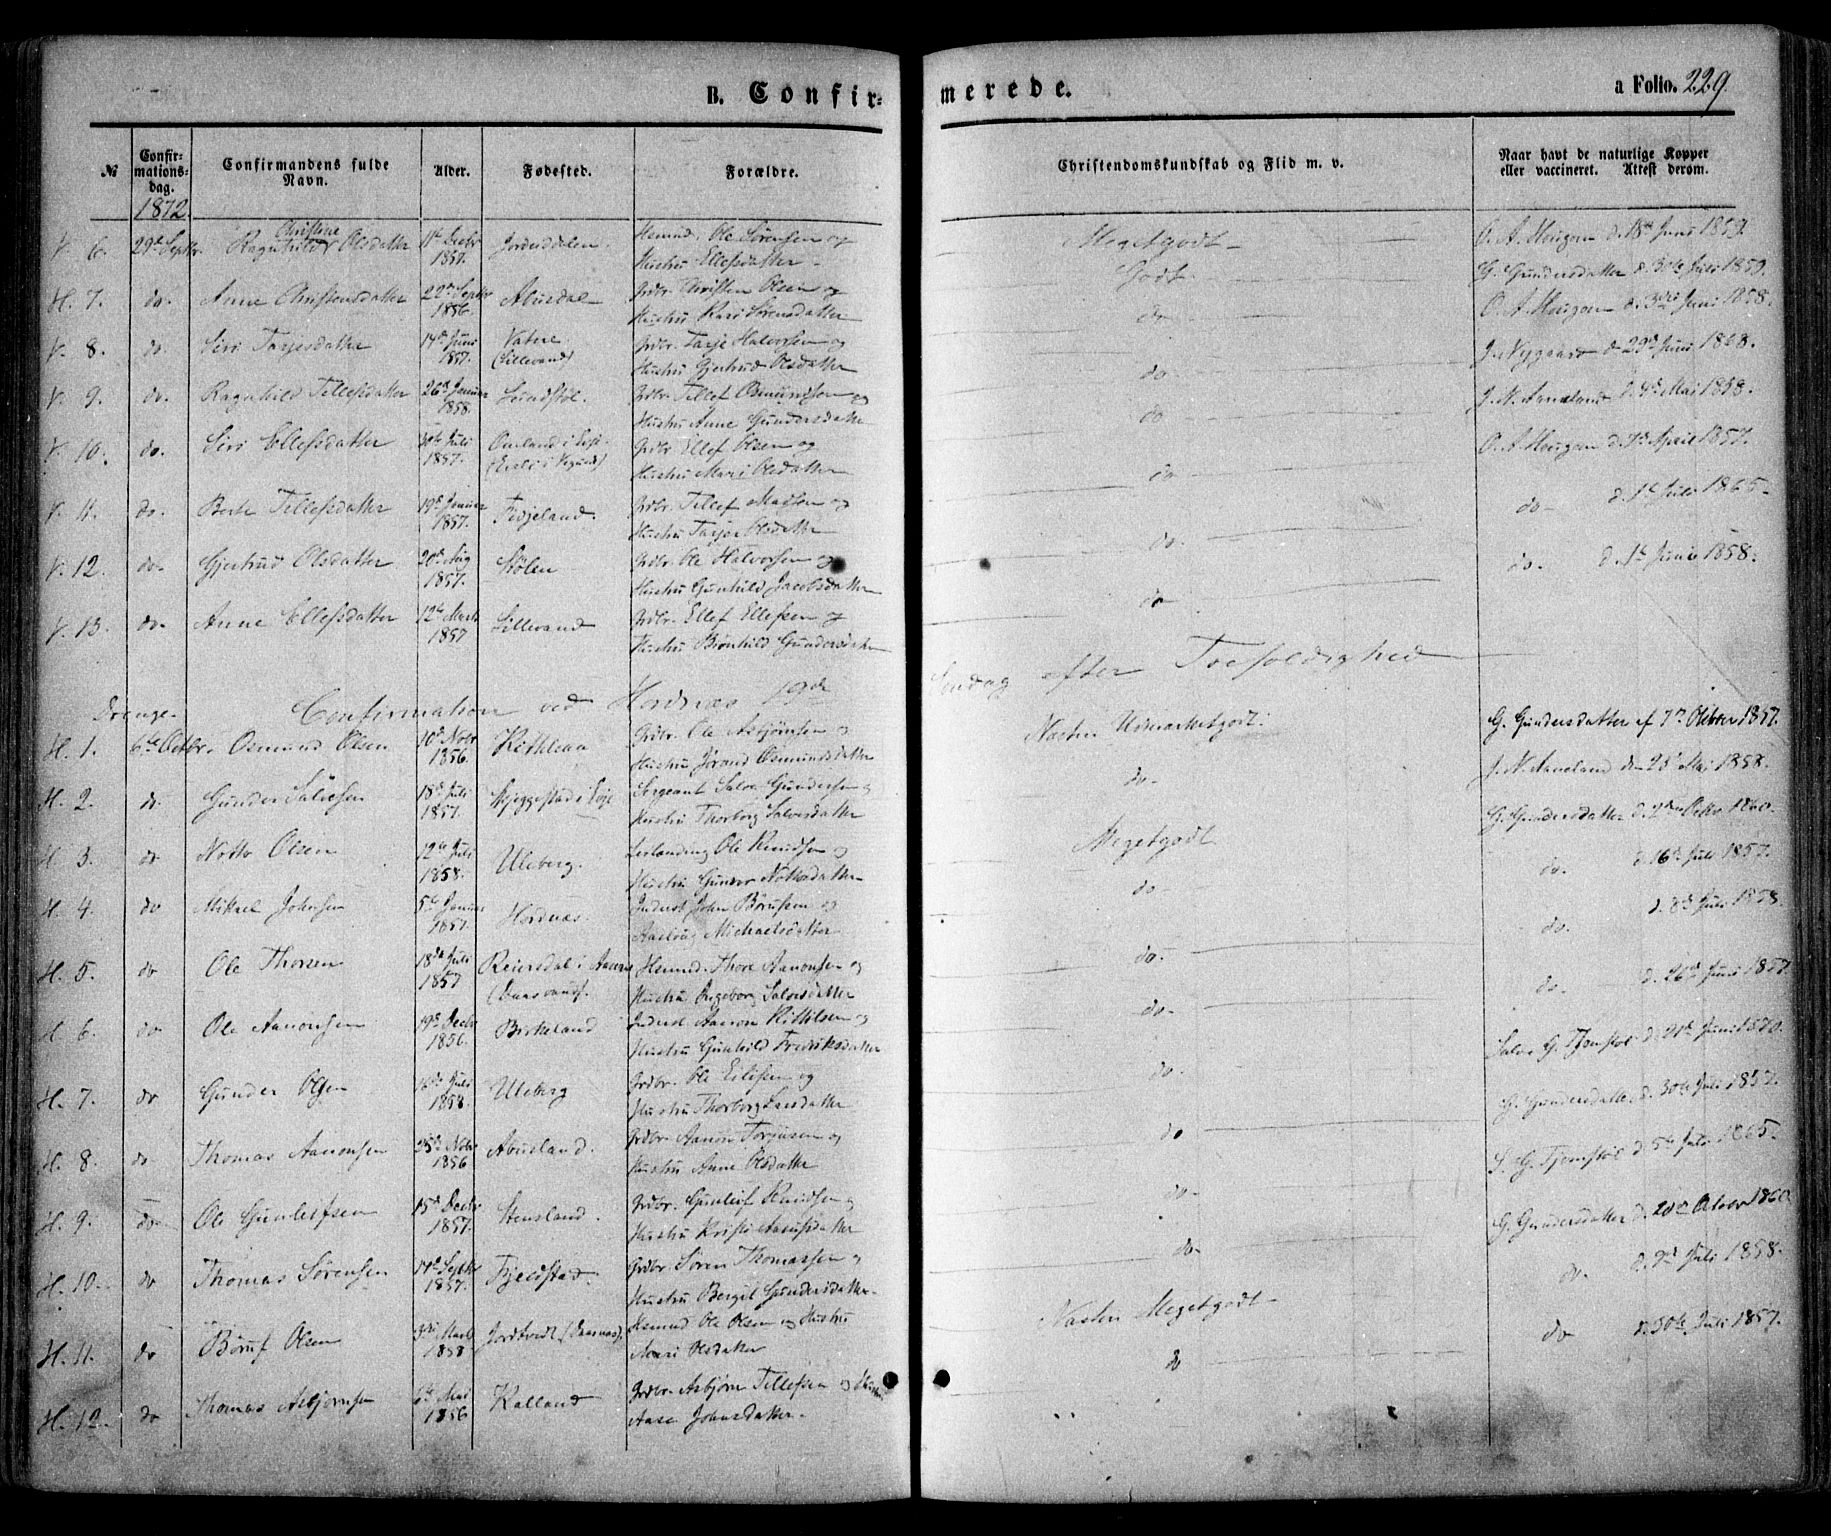 B. Confir-
merede.
a Folio. 229.
№
Confir-
mations-
dag.
1872.
Confirmandens fulde
Navn.
Alder.
Fødested.
Forældre.
Christendomskundskab og Flid m. v.
Naar havt de naturlige Kopper
eller vaccineret. Attest derom.
V. 6. 29de Septbr. Ragnhild Christine Olsdatter 11te Decbr 1857. Jordsdalen. Ole Sörensen og
Hustru Ellefsdatter Megetgodt O. A. Hougom d. 18de Juni 1859.
H. 7. do. Anne Christensdatter 22de Septbr 1856. Abusdal Grdbr. Christen Olsen og
Hustru Kari Sörensdatter Godt G. Gundersdatter d. 30te Juli 1859.
V. 8. do. Siri Tarjesdatter 14de Juni 1857. Vatne (Lillevand) Grdbr. Tarje Halvorsen og
Hustru Gjertrud Olsdatter do O. A. Hougom d. 3die Juni 1858.
V. 9. do. Ragnhild Tellefsdatter 26de Januar 1858. Grdbr. Tellef Osmundsen og
Hustru Anne Gundersdatter do J. Nygaard d 29de Juni 1868.
V. 10. do. Siri Ellefsdatter Juli 1857. Grdbr. Ellef Olsen og
Hustru Mari Olsdatter do J. N. Aaneland d. Mai 1858.
V. 11. do. Berte Tellefsdatter 19de Januar 1857. Fidjeland. Grdbr. Tellef Madsen og
Hustru Olsdatter do O. A. Hougom d. April 1857.
V. 12. do. Gjertrud Olsdatter 20de Aug 1857. Stölen Grdbr. Ole Halvorsen og
Hustru Gunhild Jacobsdatter do. do d. 1te Juli 1865.
V. 13. do. Anne Ellefsdatter 12te Marts 1857 Lillevand Grdbr. Ellef Ellefsen og
Hustru Brönhild Gundersdatter do do. d. 1te Juni 1858.
Drenge Confirmation ved Hordnæs 19de Söndag efter Trefoldighed
H. 1. 6te Octbr. Osmund Olsen 10de Novbr 1856. Grdbr. Ole Asbjörnsen og
Hustru Jörand Osmundsdatter Næsten Udmærketgodt. G. Gundersdatter af 7de October 1857.
H. 2. do. Gunder Salvesen 18de Juli 1857. Sergeant Salve Gundersen og
Hustru Thorborg Salvesdatter do. J. N. Aaneland den 28de Mai 1858.
H. 3. do Notto Olsen 12te Juli 1858. Uleberg. Ole Knudsen og
Hustru Gunvor Nottosdatter Megetgodt G. Gundersdatter d. 2den Octbr 1860.
H. 4. do Mikael Johnsen 5te Januar 1857. Hordnæs. Inderst John Börufsen og
Aaslaug Michaelsdatter do. do. d. 16de Juli 1857.
H. 5. do Ole Thorsen 18de Juli 1857 Reiersdal i Thore Aanonsen og
Hustru Ingeborg Salvesdatter do. do. d. 8de Juli 1858.
H. 6. do Ole Aanonsen 19de Decbr 1856. Birkeland Inderst Aanon Kittilsen og
Hustru Gunhild Fredriksdatter do. do. d. 26de Juni 1857.
H. 7. do Gunder Olsen Juli 1858. Uleberg Grdbr. Ole Eilefsen og
Hustru Thorborg Larsdatter do. Salve G. Tjomstöl d. 21de Juni 1870.
H. 8. do. Thomas Aanonsen 25de Novbr 1856 Abusland. Grdbr. Aanon Torjusen og
Hustru Anne Olsdatter do G. Gundersdatter d. 30te Juli 1857.
H. 9. do Ole Gunleifsen 15de Decbr 1857. Stensland. Grdbr. Gunleif Knudsen og
Hustru Kristi Aasufsdatter do. S. G. Tjomstöl d 5te Juli 1865.
H. 10. do Thomas Sörensen 14de Septbr 1857. Fjeldstad. Grdbr Sören Thomassen og
Hustru Bergit Gundersdatter. do. G. Gundersdatter d. 20de October 1860.
H. 11. do Böruf Olsen 3die Marts 1858 Ole Olsen og Hustru
Mari Olsdatter Næsten Megetgodt do. d. 9de Juli 1858.
H. 12. do Thomas Asbjörnsen 6te Mai 1856 Kalland Grdbr. Asbjörn Tellefsen og Hustru
Aase Johnsdatter. do do d. 30te Juli 1857.